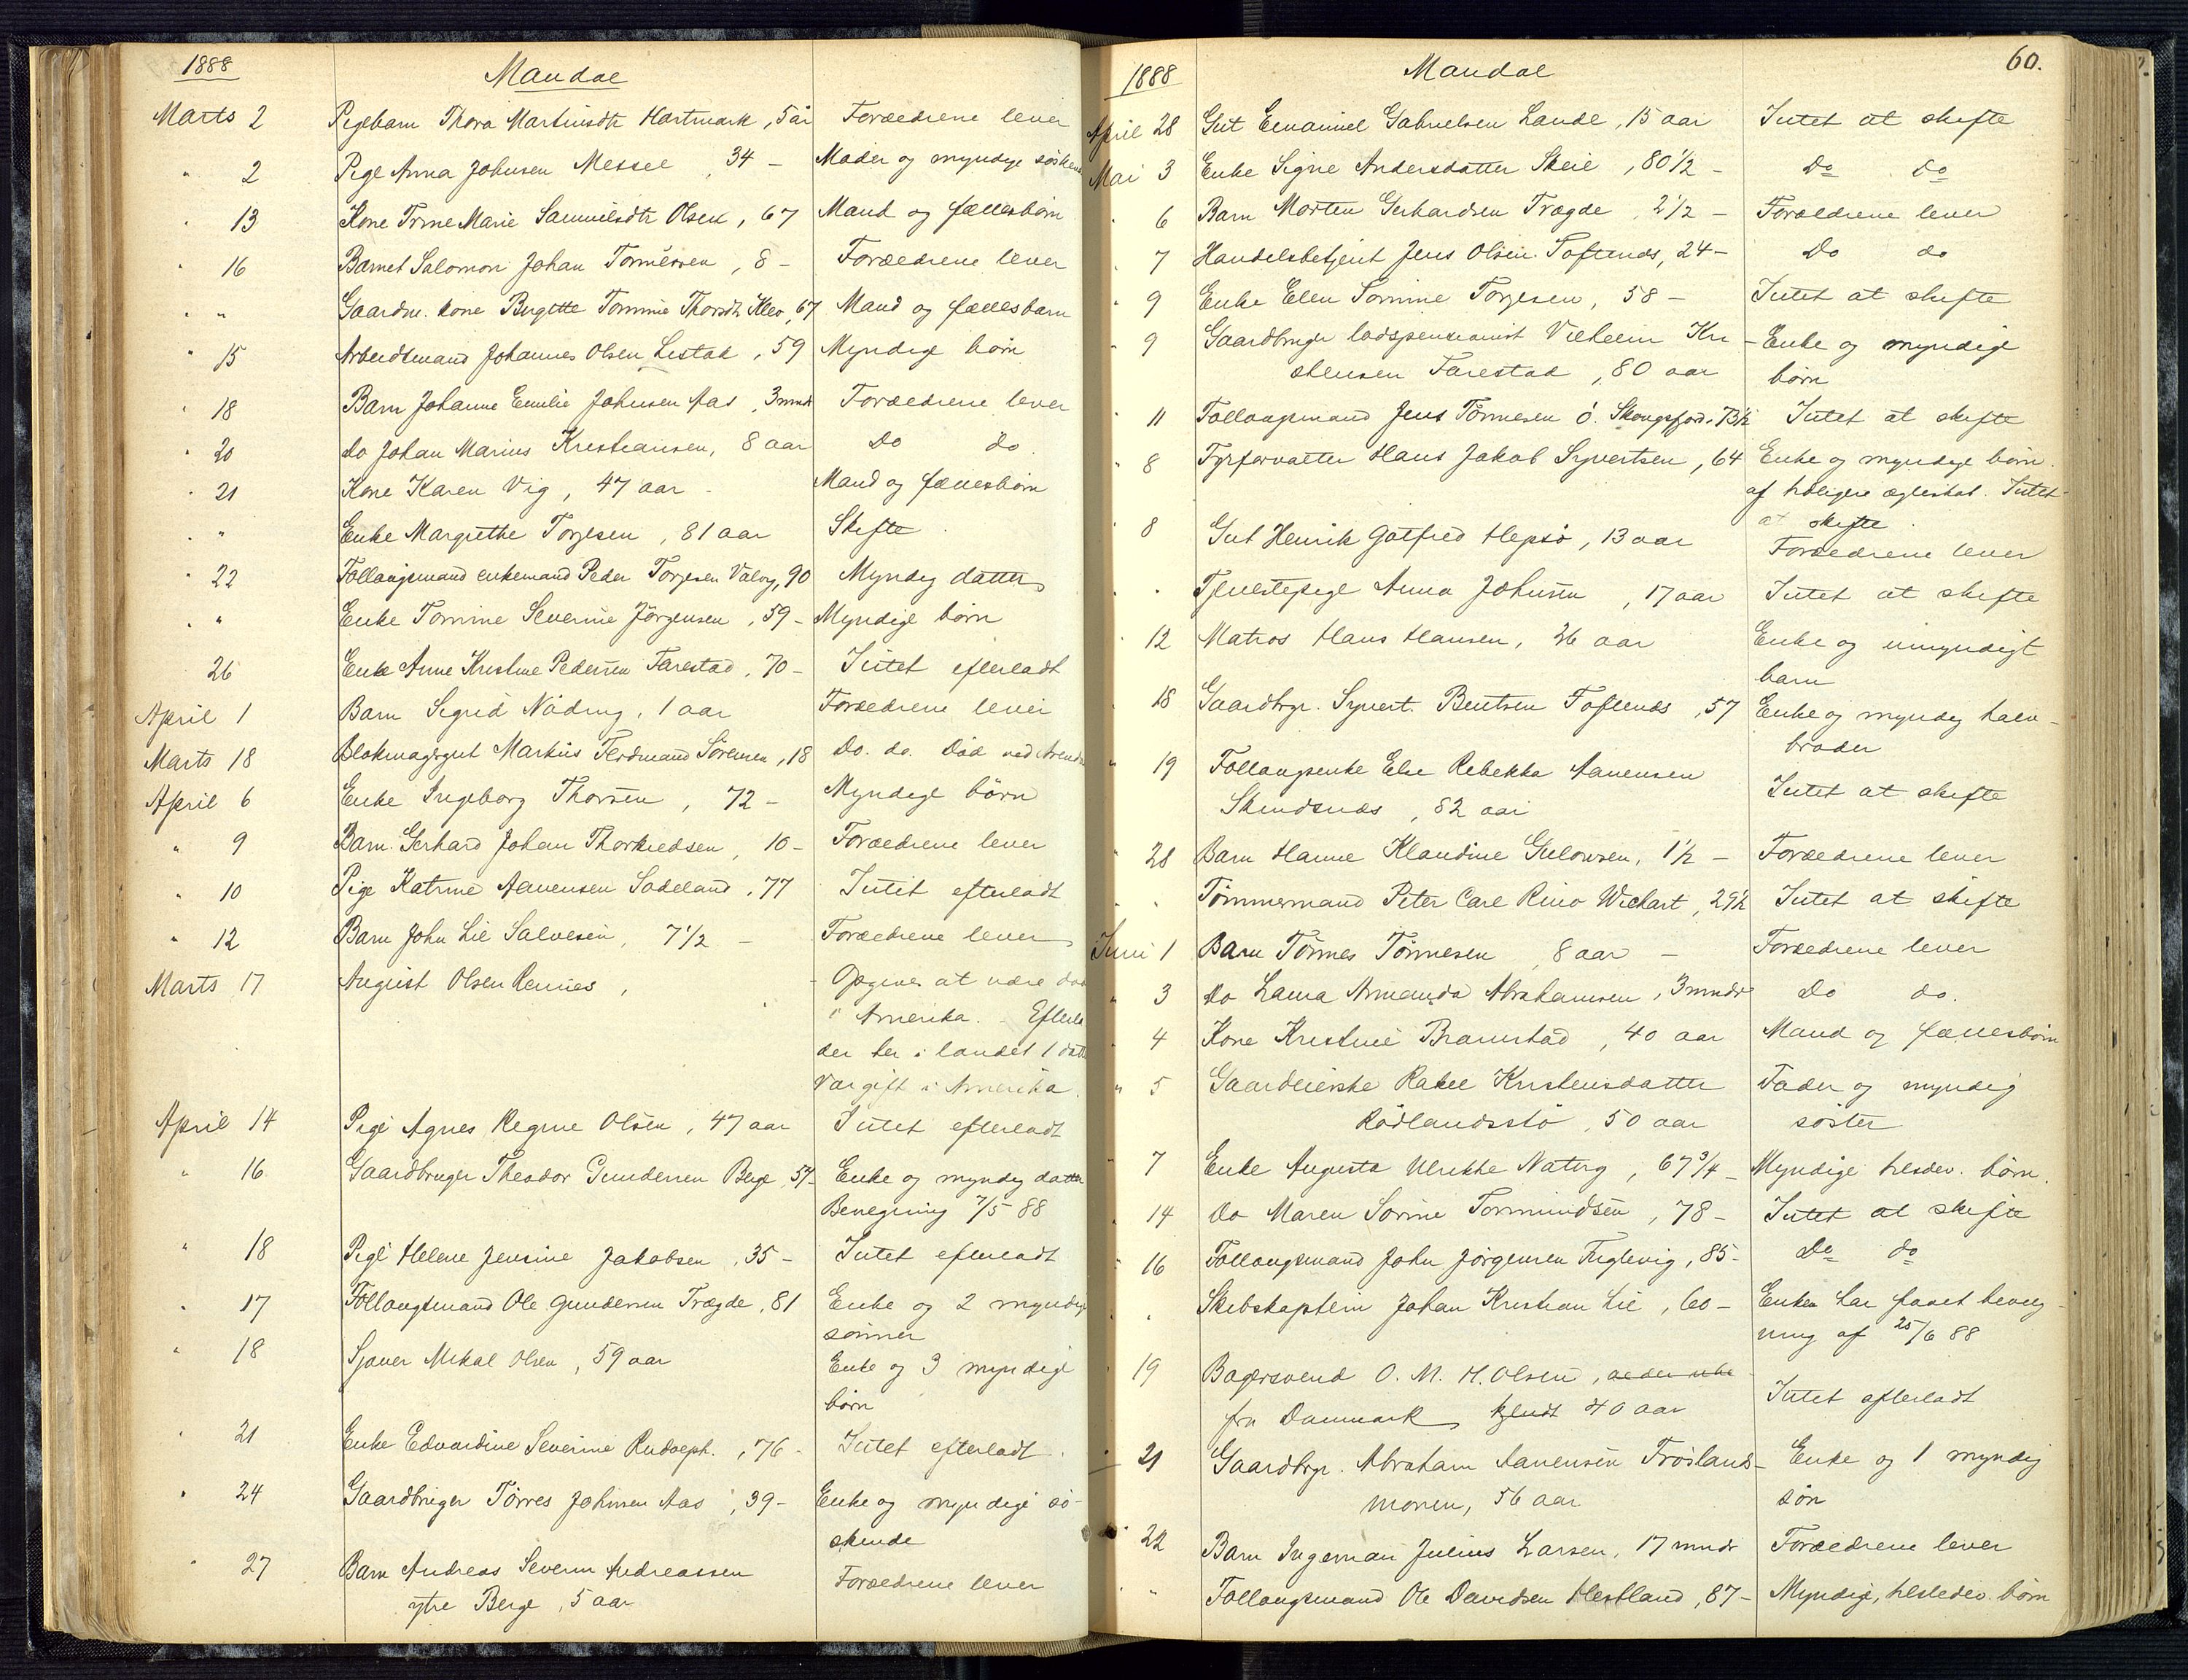 1888
Mandal
Marts 2 Pigebarn Thora Martinsdtr Hartmark, 5 år Forældrene lever
" 2 Pige Anna Johnsen Messel, 34 - Moder og myndige söskende
" 13 Kone Trine Marie Samuelsdtr Olsen, 67 Mand og fællesbörn
" 16 Barnet Salomon Johan Tönnessen, 8 - Forældrene lever
" " Gaardm. kone Birgitte Tomine Thorsdtr Klev, 67 Mand og fællesbarn
" 15 Arbeidsmand Johannes Olsen Lestad, 59 Myndige börn
" 18 Barn Johanne Emilie Johnsen Aas, 3 mndr Forældrene lever
" 20 do Johan Marius Kristiansen, 8 aar Do do
" 21 Kone Karen Vig, 47 aar - Mand og fællesbörn
" " Enke Margrethe Torjesen, 81 aar Skifte
" 22 Föllaugsmand enkemand Peder Torjesen Valvig, 90 Myndig datter
" " Enke Tomine Severine Jörgensen, 59 - Myndige börn
26 Enke Anne Kristine Pedersen Farestad, 70 - Intet efterladt
April 1 Barn Sigrid Nödring, 1 aar Forældrene lever
Marts 18 Blokmagergut Markus Ferdinand Sörensen, 18 Do. do. Död ved Arendal
April 6 Enke Ingeborg Thorsen, 72 - Myndige börn
" 9 Barn Gerhard Johan Thorkildsen, 10 - Forældrene lever
" 10 Pige Katrine Aanensen Sodeland, 77 Intet efterladt
" 12 Barn John Lie Salvesen, 7 1/2 - Forældrene lever
Marts 17 August Olsen Rennes, - Opgives at være död
i Amerika. Efterla
der her i landet 1 datt
Var gift i Amerika.
April 14 Pige Agnes Regine Olsen, 47 aar Intet efterladt
" 16 Gaardbruger Theodor Gundersen Berge, 57 - Enke og myndig datter
Bevegning 7/5 88
" 18 Pige Helene Jensine Jakobsen, 35 - Intet efterladt
" 17 Föllaugsmand Ole Gundersen Trægde, 81 Enke og 2 myndige
sönner
" 18 Sjauer Mikal Olsen, 59 aar Enke og 3 myndige
börn
" 21 Enke Edvardine Severine Rudolph., 76 - Intet efterladt.
" 24 Gaardbruger Törres Johnsen Aas, 39 - Enke og myndige sö-
skende
" 27 Barn Andreas Severin Andreassen Forældrene lever
ytre Berge, 5 aar
60.
1888
Mandal
April 28 Gut Emanuel Gabrielsen Lande, 15 aar Intet at skifte
Mai 3 Enke Signe Andersdatter Skeie, 80 1/2 - Do do
" 6 Barn Morten Gerhardsen Trægde, 2 1/2 - Forældrene lever
" 7 Handelsbetjent Jens Olsen Toftenes, 24 - Do do
" 9 Enke Elen Tomine Torjesen, 58 - Intet at skifte
" 9 Gaardbruger lodspensionist Vilhelm Kri- Enke og myndige
stensen Farestad, 80 aar börn
" 11 Föllaugsmand Jens Tönnesen ö. Skougsfjord, 73 1/2 Intet at skifte
" 8 Fyrforvalter Hans Jakob Syvertsen, 64 Enke og myndige börn
af tidligere ægteskab. Intet
at skifte
" 8 Gut Henrik Gotfred Hepsö, 13 aar Forældrene lever
" " Tjenestepige Anna Johnsen, 17 aar Intet at skifte
" 12 Matros Hans Hansen, 26 aar Enke og umyndigt
barn
18 Gaardbrgr. Syvert Bentsen Toftenes, 57 Enke og myndig halv-
broder
" 19 Föllaugsenke Else Rebekka Aanensen
Skindsnæs, 82 aar Intet at skifte
" 28 Barn Hanne Klaudine Gulowsen, 1 1/2 - Forældrene lever
" " Tömmermand Peter Carl Rino Wichart, 29 1/2 Intet at skifte
Juni 1 Barn Tönnes Tönnesen, 8 aar - Forældrene lever
" 3 do Laura Armanda Abrahamsen, 3 mndr Do do.
4 Kone Kristine Bramstad, 40 aar Mand og fællesbörn
" 5 Gaardeierske Rakel Kristensdatter Fader og myndig
Rödlandsstö, 50 aar söster
" 7 Enke Augusta Ulrikke Natvig, 67 3/4 - Myndige tilstedev. börn.
14 do Maren Sorine Tormundsen, 78 - Intet at skifte
" 16 Föllaugsmand John Jörgensen Fuglevig, 85 - Do do
" Skibskaptein Johan Kristian Lie, 60 - Enken har faaet bevilg-
ning af 25/6 88
19 Bagersvend O. M. H. Olsen,
fra Danmark 40 aar Intet efterladt
21 Gaardbrgr. Abraham Aanensen Fröslands- Enke og 1 myndig
monen, 56 aar sön
" 22 Barn Ingeman Julius Larsen, 17 mndr Forældrene lever
" " Föllaugsmand Ole Davidsen Hestland, 87 - Myndige, tilstedev. börn